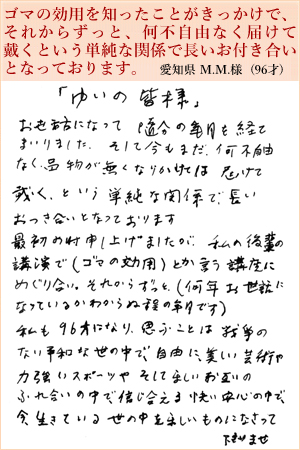 ゴマの効用を知ったことがきっかけで、
それからずっと、何不自由なく届けて
戴くという単純な関係で長いお付き合い
となっております。 愛知県 M.M.様（96才）
「ゆいの皆様」
お世話になって 随分の年月を経て
まいりました。そして今もまだ、何不自由
なく、品物が無くなりかけては 届けて
戴く、という単純な関係で、長い
おつき合いとなっております
最初の時申し上げましたが、私の後輩の
講演で（ゴマの効用）とか言う講座に
めぐり合い。それからずっと、（何年お世話に
なっているかわからぬ程の年月です）
私も96才になり、思うことは 戦争の
ない平和な世の中で、自由に、美しい芸術や
力強いスポーツや そして楽しいお互いの
ふれ合いの中で信じ合える 快い安心の中で、
今、生きている 世の中を楽しいものになさって
下さいませ